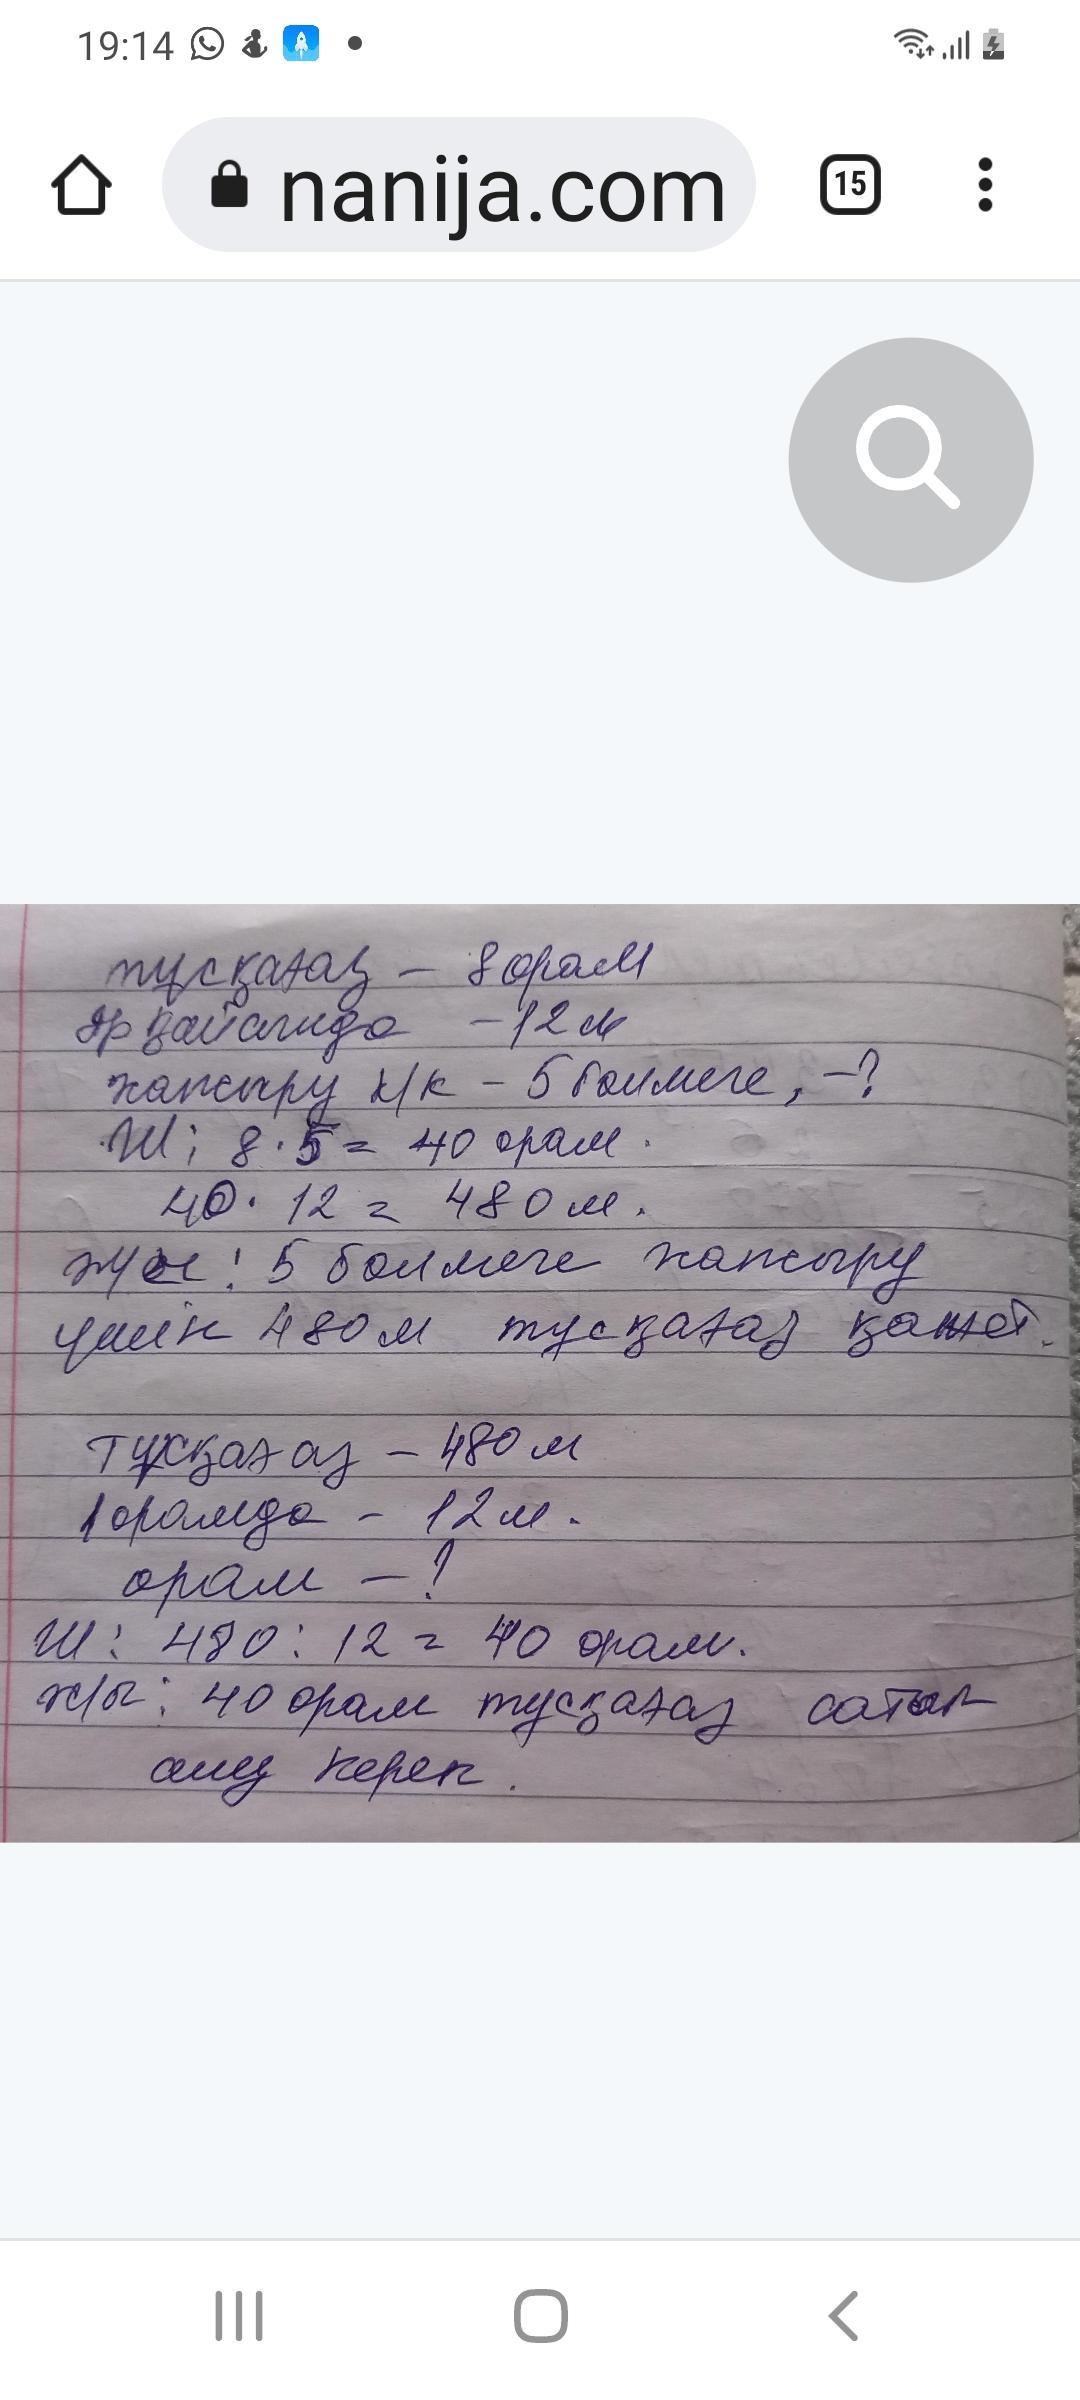 19:14
nanija.com
15
тұсқағаз – 8 орам
әр қайсында – 12 м
жапсыру к/к – 5 бөлмеге, –?
Ш: 8 · 5 = 40 орам.
40 · 12 = 480 м.
Ж/ы: 5 бөлмеге жапсыру
үшін 480 м тұсқағаз қажет.
Тұсқағаз – 480 м
1 орамда – 12 м.
орам – ?
Ш: 480 : 12 = 40 орам.
ж/ы: 40 орам тұсқағаз сатып
алу керек.